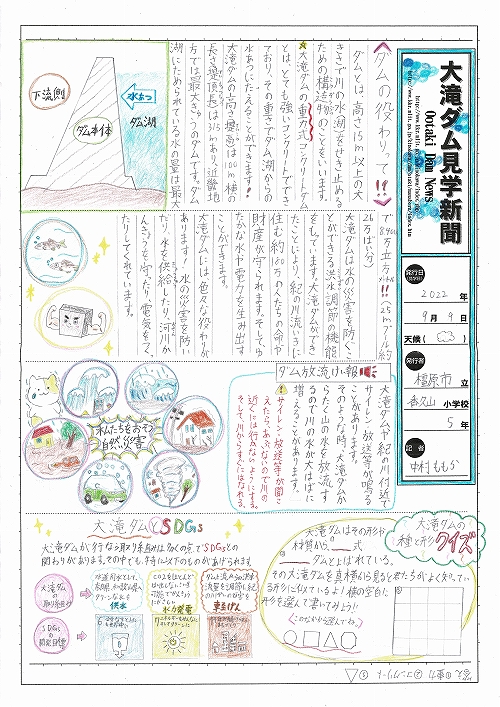 大滝ダム見学新聞
Ootaki Dam News
発行日
2022年
9月9日
天候
発行者
橿原市立
香久山小学校
5年
記者
中村ももか
ダムの役わりって!!?
ダムとは、高さ15m以上の大
きさで川の水、湖をせき止める
ための構造物のことをいいます。
大滝ダムの重力式コンクリートダム
とは、とても強いコンクリートでできて
おり、その重さでダム湖からの
水あつにたえることができます!
大滝ダムの高さ(堤高)は100m、横の
長さ(堤頂長)は315mあり、近畿地
方では最大きゅうのダムです。ダム
湖にためられている水の量は最大
で8,400万立方メートル!!(25mプール約
26万ぱい分)
大滝ダムは水の災害を防ぐこ
とができる洪水調節の機能
をもっています。大滝ダムができ
たことにより、紀の川流いきに
住む約100万の人たちの命や
財産が守られます。そしてゆ
たかな水や電力を生み出す
ことができます。
大滝ダムには、色々な役わりが
あります!水の災害を防い
だり、水を供給したり、河川か
んきょうを守ったり、電気をつく
たりしてくれています。
下流側
ダム本体
水あつ
ダム湖
ダム放流け報
大滝ダムや紀の川付近で
サイレン、放送等が鳴る
ことがあります。
そのような時、大滝ダムか
らたく山の水を放流す
るので川の水が大はばに
増えることがあります。
サイレン、放送等が聞こ
えたらあぶないので川の
近くには行かないように!
そして川からすぐにはなれる。
私たちをおそう
自然災害
大滝ダムとSDGs
大滝ダムが行なう取り組みは多くの点でSDGsとの
関わりがあります。その中でも、特に以下のものがあげられます。
大滝ダム
の
取り組み
供水
水力発電
SDGs
の
開発目標
大滝ダムの
種と形クイズ
大滝ダムはその形や
材質から、①式
②ダムとよばれている。
その大滝ダムを真横から見ると君たちがよく知ってい
る形に似ているよ!横の空白に
形を選んで書いてみよう!!
(この中から選んでね。)
○□△◇
答え ①重力 ②コンクリート ③△